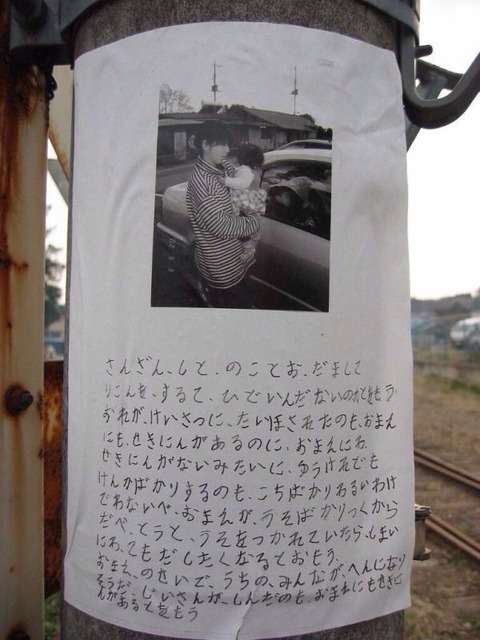 さんざん、しと、のことお、だまして
りこんを、するて、ひでいんだないのかとをもう
おれが、けいさつに、たいほされたのも、おまえ
にも、せきにんがあるのに、おまえにわ
せきにんがないみたいに、ゆうけれでも
けんかばかりするのも、こちばかりわるいわけ
でわないべ、おまえが、うそばかりつくから
だべ、とうと、うそをつかれていたら、しまい
にわ、てもだしたくなるとおもう、
おまえ、のせいで、うちの、みんなが、へんになり
そうだ、じいさんが、しんだのも、おまえにもせきに
んがあるとをもう